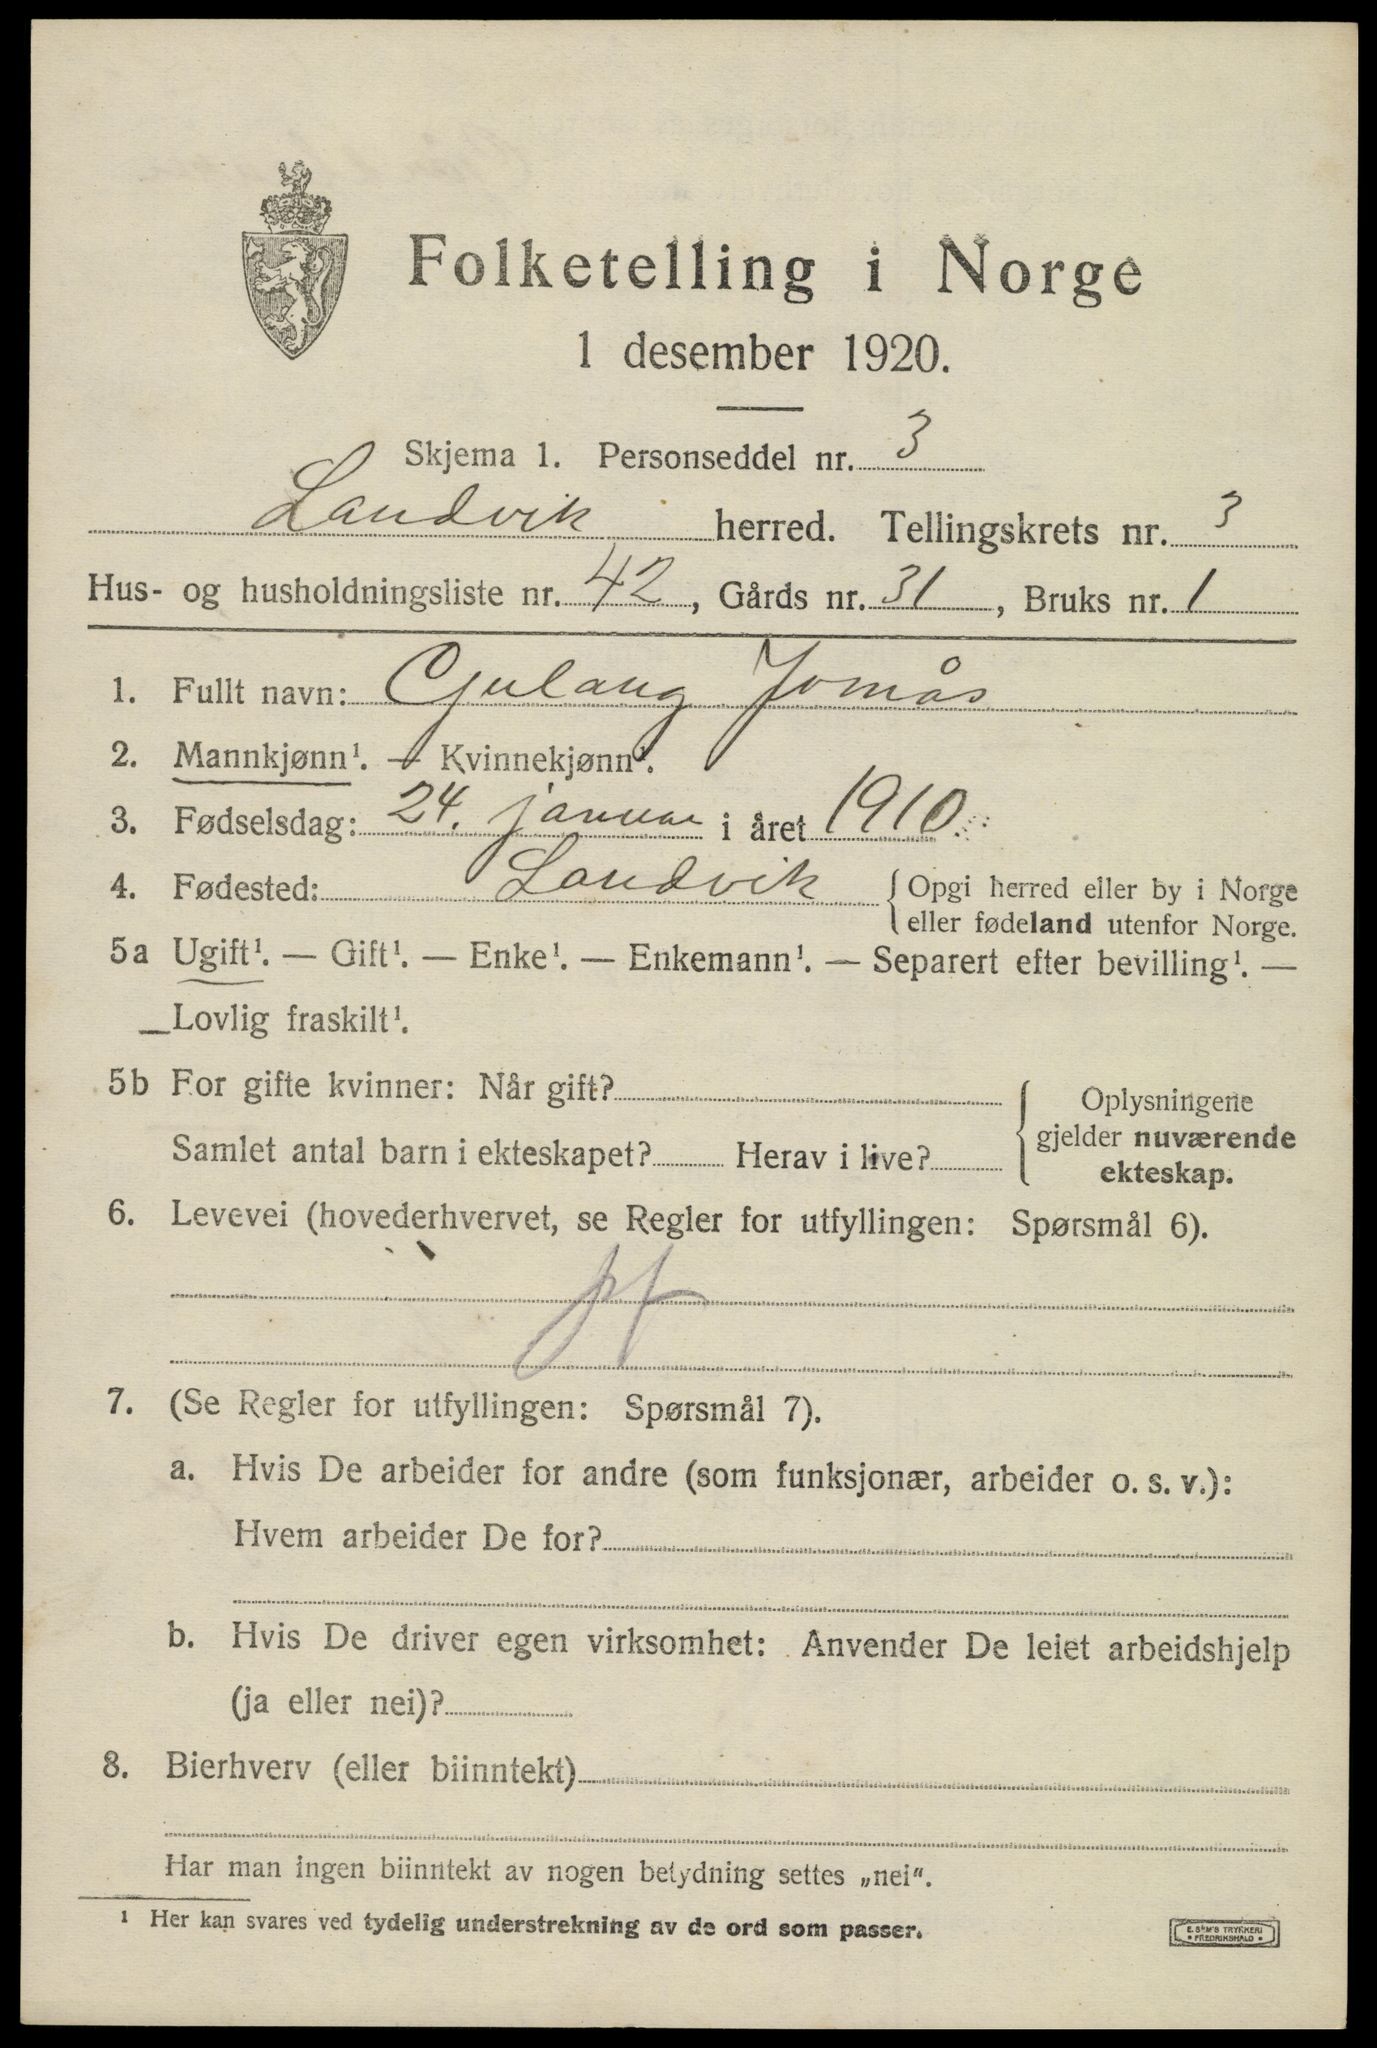 Folketelling i Norge
1 desember 1920.
Skjema 1. Personseddel nr. 3
Landvik herred. Tellingskrets nr. 3
Hus- og husholdningsliste nr. 42, Gårds nr. 31, Bruks nr. 1
1. Fullt navn: Gjulaug Jomås
2. Mannkjønn¹. — Kvinnekjønn¹.
3. Fødselsdag: 24. januar i året 1910.
4. Fødested: Landvik { Opgi herred eller by i Norge
eller fødeland utenfor Norge.
5a Ugift¹. — Gift¹. — Enke¹. — Enkemann¹. — Separert efter bevilling¹. —
Lovlig fraskilt¹.
5b For gifte kvinner: Når gift?
Samlet antal barn i ekteskapet? Herav i live?
Oplysningene
gjelder nuværende
ekteskap.
6. Levevei (hovederhvervet, se Regler for utfyllingen: Spørsmål 6).
7. (Se Regler for utfyllingen: Spørsmål 7).
a. Hvis De arbeider for andre (som funksjonær, arbeider o. s. v.):
Hvem arbeider De for?
b. Hvis De driver egen virksomhet: Anvender De leiet arbeidshjelp
(ja eller nei)?
8. Bierhverv (eller biinntekt)
Har man ingen biinntekt av nogen betydning settes „nei“.
¹ Her kan svares ved tydelig understrekning av de ord som passer.
E. SEM'S TRYKKERI
• FREDRIKSHALD •